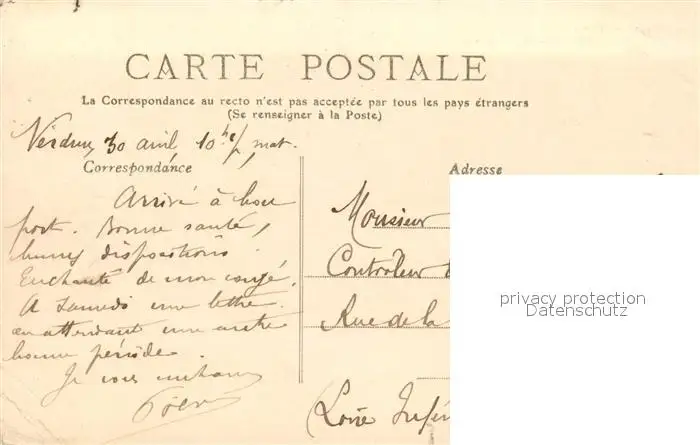 CARTE POSTALE
La Correspondance au recto n'est pas acceptée par tous les pays étrangers
(Se renseigner à la Poste)
Verdun 30 avril 10 h mat.
Correspondance
Adresse
Arrivé à bon
port. Bonne santé,
bonnes dispositions.
Enchanté de mon congé.
A samedi une lettre.
en attendant une autre
bonne période.
Je vous embrasse
Monsieur
Contrôleur
Rue de la
Loire Infér
privacy protection
Datenschutz